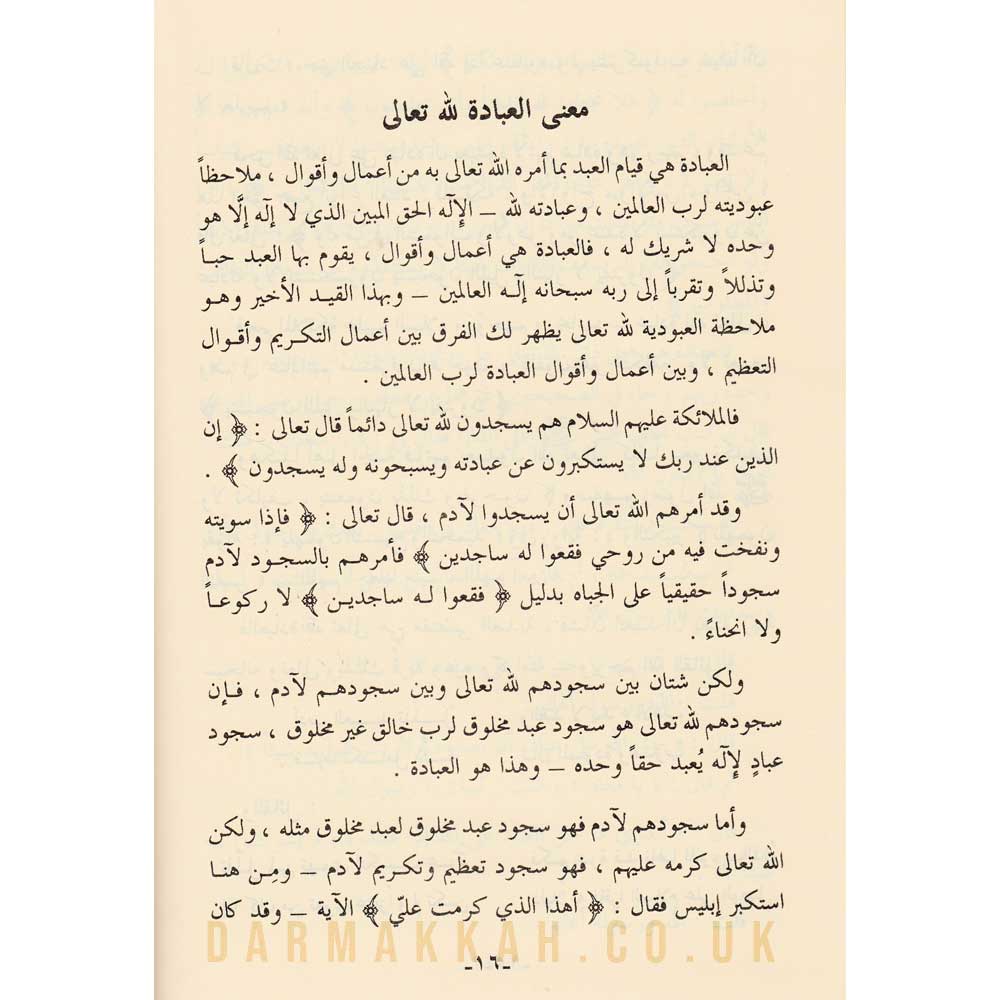 معنى العبادة لله تعالى
العبادة هي قيام العبد بما أمره الله تعالى به من أعمال وأقوال ، ملاحظاً
عبوديته لرب العالمين ، وعبادته لله – الإلٰه الحق المبين الذي لا إلٰه إلَّا هو
وحده لا شريك له ، فالعبادة هي أعمال وأقوال ، يقوم بها العبد حبـاً
وتذللاً وتقرباً إلى ربه سبحانه إلٰه العالمين – وبهذا القيد الأخير وهـو
ملاحظة العبودية لله تعالى يظهر لك الفرق بين أعمال التكريم وأقـوال
التعظيم ، وبين أعمال وأقوال العبادة لرب العالمين .
فالملائكة عليهم السلام هم يسجدون لله تعالى دائماً قال تعالى : ﴿ إن
الذين عند ربك لا يستكبرون عن عبادته ويسبحونه وله يسجدون ﴾ .
وقد أمرهم الله تعالى أن يسجدوا لآدم ، قال تعالى : ﴿ فإذا سويته
ونفخت فيه من روحي فقعوا له ساجدين ﴾ فأمرهـم بالسجـود لآدم
سجوداً حقيقياً على الجباه بدليل ﴿ فقعوا لـه ساجديـن ﴾ لا ركوعـاً
ولا انحناءً .
ولكن شتان بين سجودهم لله تعالى وبين سجودهـم لآدم ، فـإن
سجودهم لله تعالى هو سجود عبد مخلوق لرب خالق غير مخلوق ، سجود
عبادٍ لإلٰه يُعبد حقاً وحده – وهذا هو العبادة .
وأما سجودهم لآدم فهو سجود عبد مخلوق لعبد مخلوق مثله ، ولكن
الله تعالى كرمه عليهم ، فهو سجود تعظيم وتكريم لآدم – ومِـن هنـا
استكبر إبليس فقال : ﴿ أهذا الذي كرمت عليّ ﴾ الآية – وقد كان
DARMAKKAH.CO.UK
-١٦-